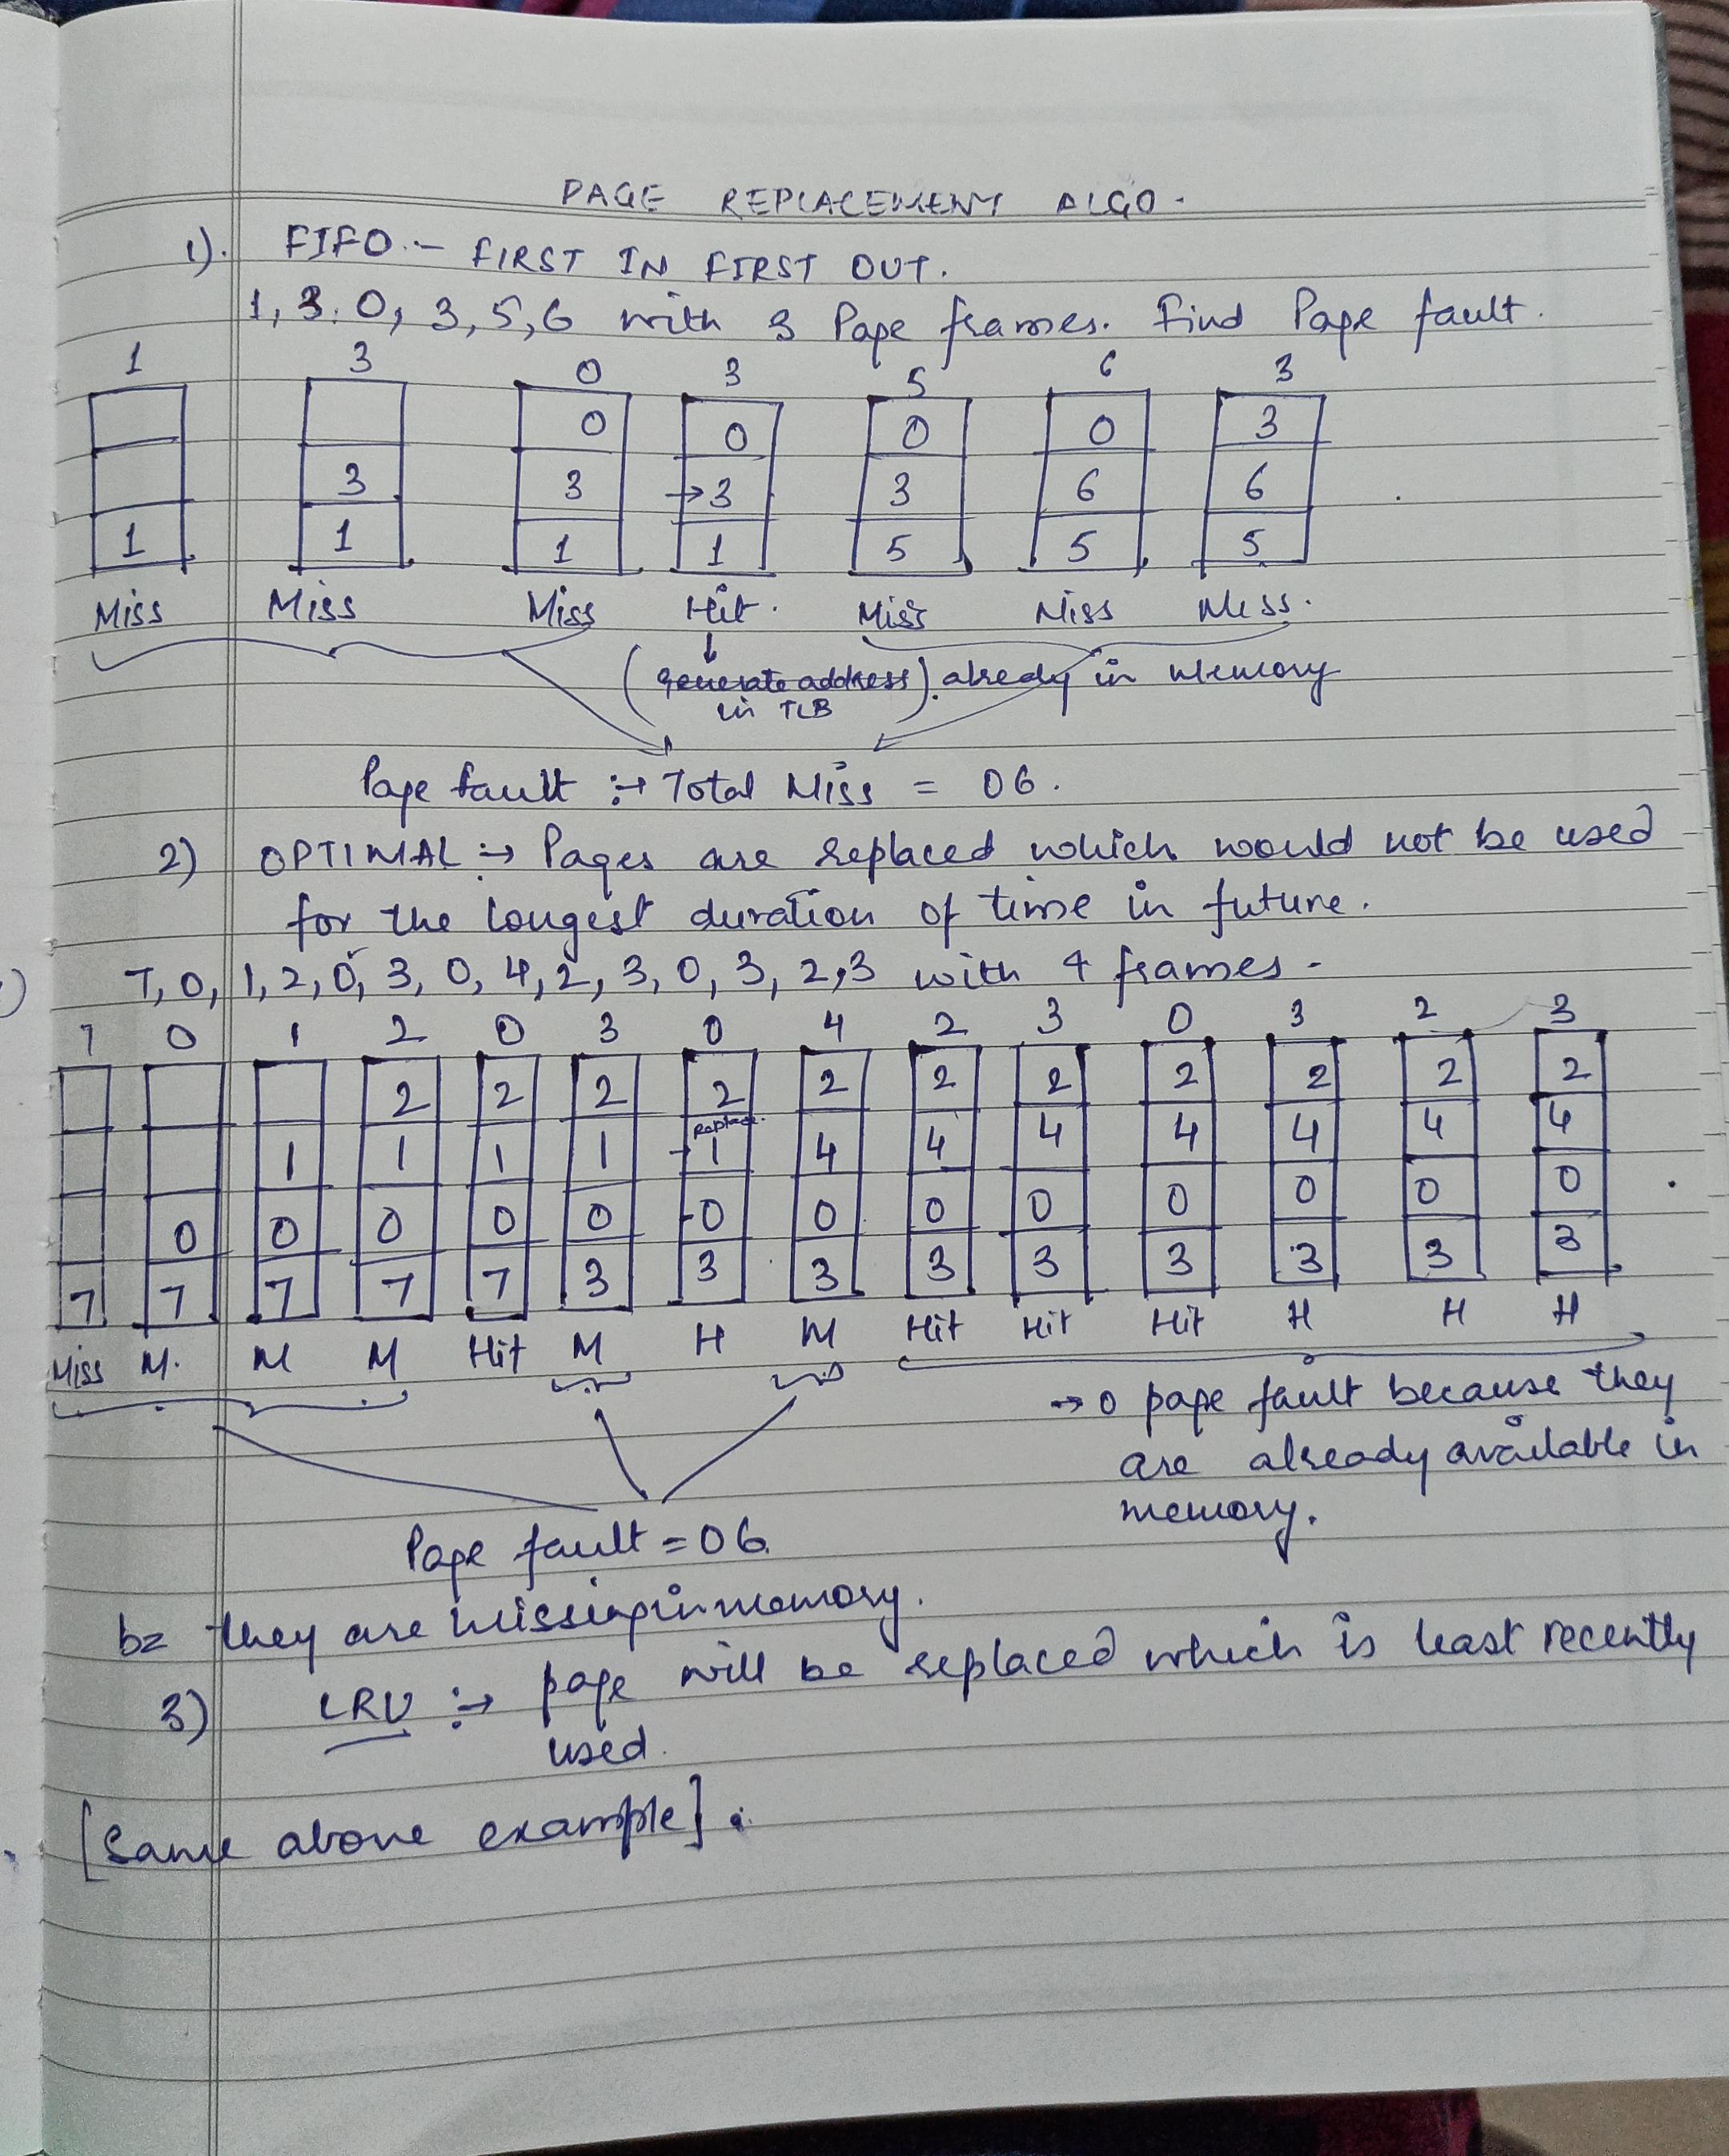 PAGE REPLACEMENT ALGO.
1). FIFO :- FIRST IN FIRST OUT.
1, 3, 0, 3, 5, 6 with 3 Page frames. Find Page fault.
1 3 0 3 5 6 3
0 0 0 0 3
3 3 →3 3 6 6
1 1 1 1 5 5 5
Miss Miss Miss Hit. Miss Miss Miss.
(generate address) already in memory
in TLB
Page fault :→ Total Miss = 06.
2) OPTIMAL :→ Pages are replaced which would not be used
for the longest duration of time in future.
7, 0, 1, 2, 0, 3, 0, 4, 2, 3, 0, 3, 2, 3 with 4 frames -
7 0 1 2 0 3 0 4 2 3 0 3 2 3
2 2 2 2 2 2 2 2 2 2 2
Replace.
1 1 1 1 1 4 4 4 4 4 4 4
0 0 0 0 0 0 0 0 0 0 0 0 0
7 7 7 7 7 3 3 3 3 3 3 3 3 3
Miss M. M M Hit M H M Hit Hit Hit H H H
→ 0 page fault because they
are already available in
memory.
Page fault = 06.
bz they are missing in memory.
3) LRU :→ page will be replaced which is least recently
used.
[Same above example].